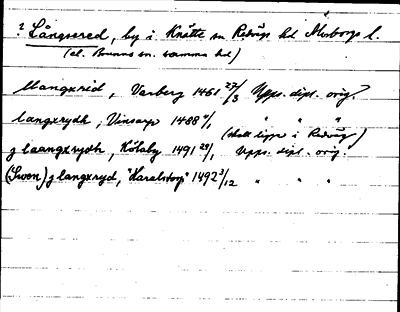 ? Långared, by i Knätte sn Redvägs hd Älvsborgs l.
(el. Brunns sn. samma hd)
langxrid, Varberg 1461 27/3 Upps. dipl. orig.?
langxrydh, Vinsarp 1488 4/1 " " "
(skall ligga i Redväg)
j laangxrydh, Kölaby 1491 29/1, Upps. dipl. orig.
(Swen) j langxryd, "Haralstorp" 1492 3/12 " " "